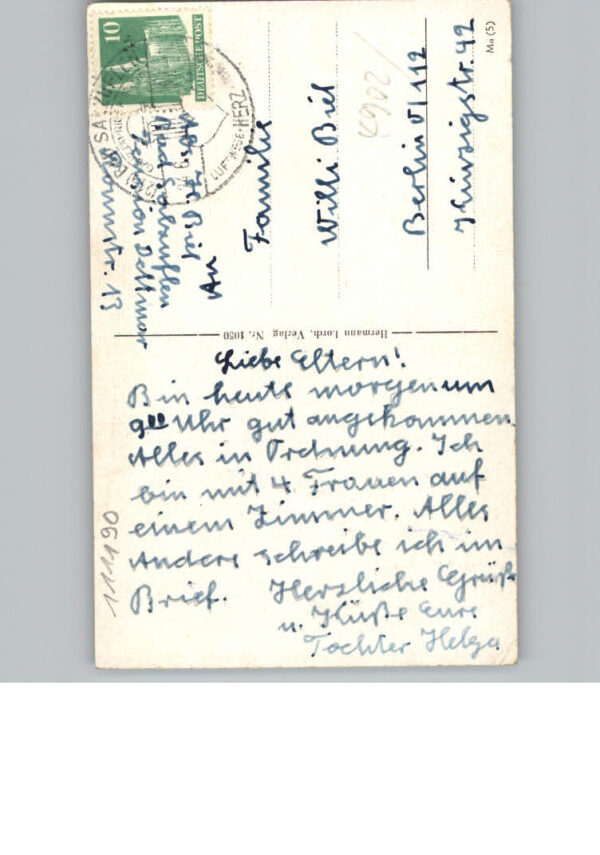 Liebe Eltern!
Bin heute morgen um
9⁰⁰ Uhr gut angekommen.
Alles in Ordnung. Ich
bin mit 4 Frauen auf
einem Zimmer. Alles
Andere schreibe ich im
Brief. Herzliche Grüße
u. Küße Eure
Tochter Helga
111190
Hermann Lorch, Verlag Nr. 1050
10
DEUTSCHE POST
HERZ
Abs. H. Biel
Bad Salzuflen
Pension Dettmar
An
Familie
Willi Biel
Berlin O/112
Kinzigstr. 42
4902/
Ma (5)